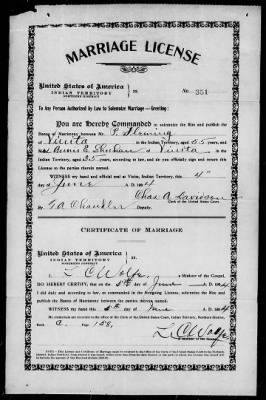 MARRIAGE LICENSE
United States of America
INDIAN TERRITORY
NORTHERN DISTRICT
ss. No. 351
To Any Person Authorized by Law to Solemnize Marriage—Greeting:
You are Hereby Commanded to solemnize the Rite and publish the
Banns of Matrimony between Mr. P. Fleming
of Vinita in the Indian Territory, aged 55 years, and
M Annie E. of Vinita in the
Indian Territory, aged 35 years, according to law, and do you officially sign and return this
License to the parties therein named.
WITNESS my hand and official seal at Vinita, Indian Territory, this 4"
day of June A. D. 1904
Chas. A. Davidson
Clerk of the United States Court
By T A Chandler Deputy
CERTIFICATE OF MARRIAGE
United States of America
INDIAN TERRITORY
NORTHERN DISTRICT
ss.
I, L C Wolfe, a Minister of the Gospel,
DO HEREBY CERTIFY, that on the 5th day of June A. D. 1904
I did duly and according to law, as commanded in the foregoing License, solemnize the Rite and
publish the Banns of Matrimony between the parties therein named.
WITNESS my hand this 5th day of June A. D. 1904
My credentials are recorded in the office of the Clerk of the United States Court, Indian Territory, Northern District,
Book C, Page 158.
L C Wolfe